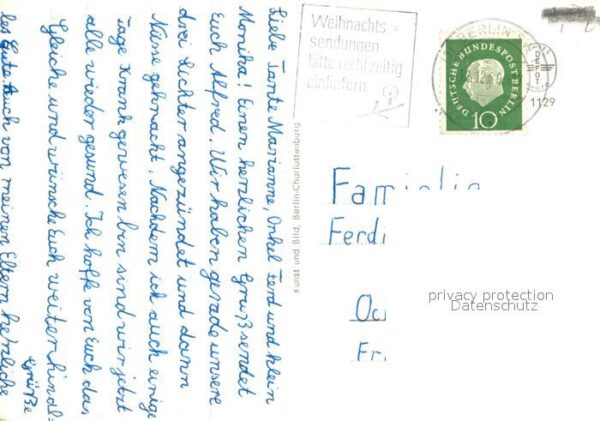 Liebe Tante Marianne, Onkel Ferd und klein
Monika! Einen herzlichen Gruß sendet
Euch Alfred. Wir haben gerade unsere
drei Lichter angezündet und dann
Nüsse geknackt. Nachdem ich auch einige
Tage krank gewesen bin sind wir jetzt
alle wieder gesund. Ich hoffe von Euch das
Gleiche und wünsche Euch weiterhin
les Gute Auch von meinen Eltern herzliche
Grüße
Kunst und Bild, Berlin-Charlottenburg
Weihnachts-
sendungen
bitte rechtzeitig
einliefern
BERLIN
DEUTSCHE BUNDESPOST BERLIN
10
1129
Familie
Ferdi
Fr.
privacy protection
Datenschutz